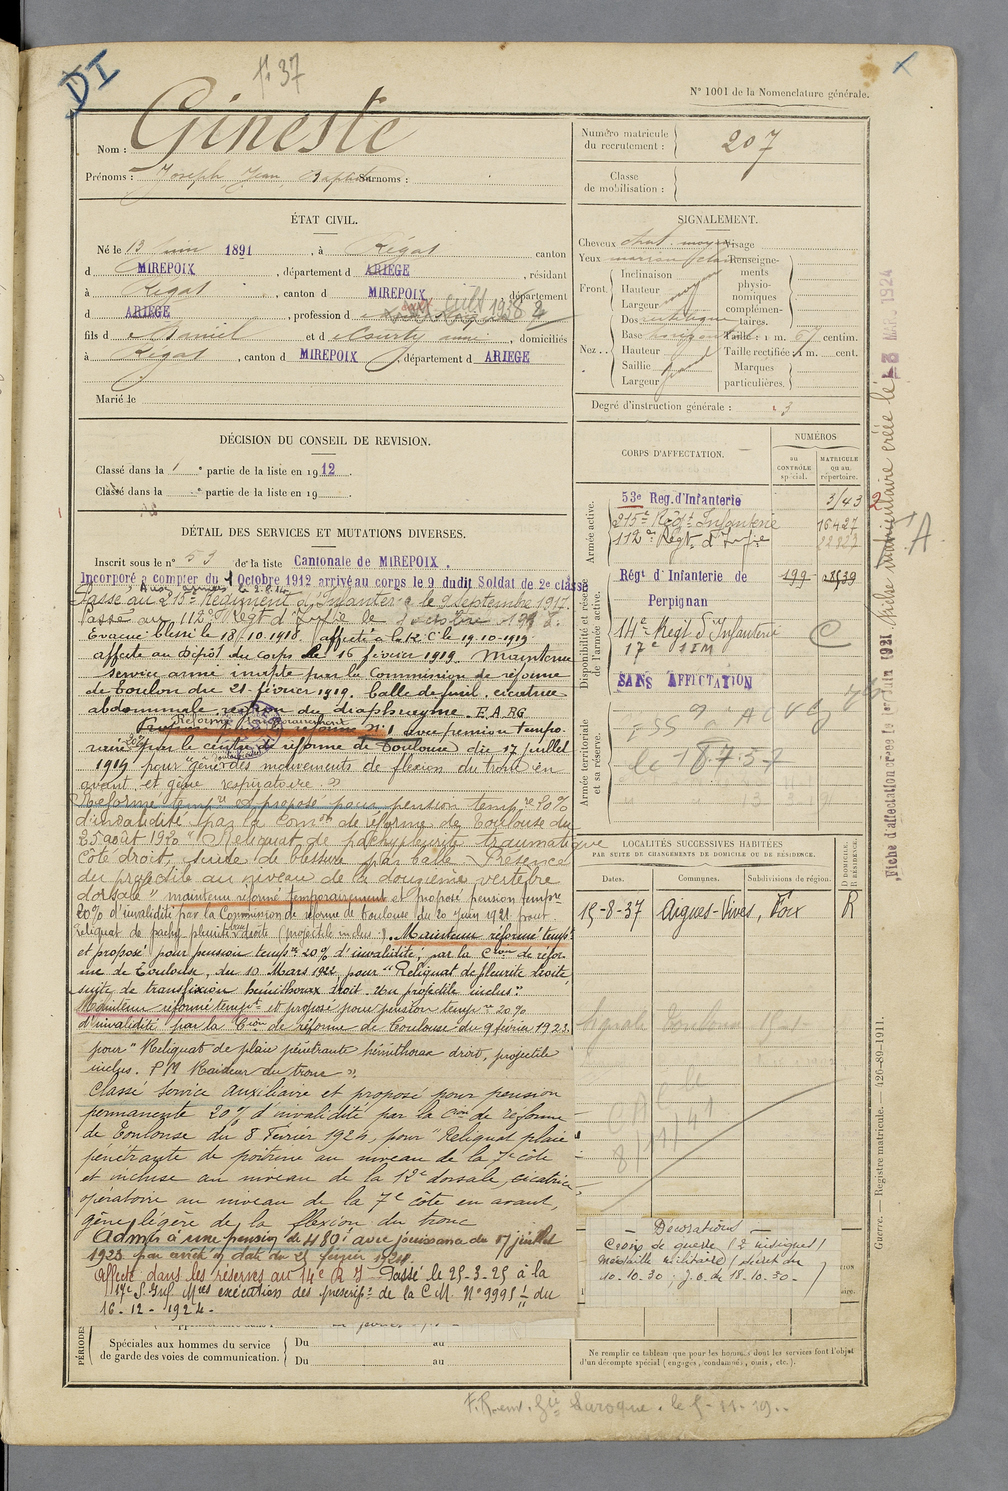 DI
f. 37
N° 1001 de la Nomenclature générale.
Nom : Gineste
Prénoms : Joseph Jean Baptiste Surnoms :
Numéro matricule du recrutement : 207
Classe de mobilisation :
ÉTAT CIVIL.
Né le 13 juin 1891, à Régat canton
d MIREPOIX, département d ARIEGE, résidant
à Régat, canton d MIREPOIX, département
d ARIEGE, profession d
fils d et d, domiciliés
à Régat, canton d MIREPOIX, département d ARIEGE
Marié le
SIGNALEMENT.
Cheveux chat. moyen Visage
Yeux marron clair Renseigne-
Front. Inclinaison ments
Hauteur moy physio-
Largeur nomiques
complémen-
Nez.. Dos rectiligne taires.
Base horizontal Taille : 1 m. 67 centim.
Hauteur Taille rectifiée : 1 m. cent.
Saillie Marques
Largeur particulières.
Degré d'instruction générale : 3
DÉCISION DU CONSEIL DE REVISION.
Classé dans la 1e partie de la liste en 1912.
Classé dans la e partie de la liste en 19
DÉTAIL DES SERVICES ET MUTATIONS DIVERSES.
Inscrit sous le n° 53 de la liste Cantonale de MIREPOIX.
Incorporé à compter du 1 Octobre 1912 arrivé au corps le 9 dudit Soldat de 2e classe
Passé au 215e Régiment d'Infanterie le 9 septembre 1917.
Passé au 112e Regt d'Infie le 8 octobre 1918.
Evacué blessé le 18/10-1918. affecté à le 19-10-1919.
affecté au Dépôt du corps le 16 février 1919. Maintenu
service armé inapte par la Commission de réforme
de Toulon du 21 février 1919. balle de fusil, cicatrice
abdominale, région du diaphragme. E.A.RG
Réformé temporairement
Proposé pour la réforme n° 1 avec pension tempo-
raire 20% par le centre de réforme de Toulouse du 17 juillet
1919 pour "gêne des mouvements de flexion du tronc en
avant et gêne respiratoire".
Réformé tempre et proposé pour pension tempre 20%
d'invalidité par la Comon de réforme de Toulouse du
25 août 1920 "Reliquat de pachypleurite traumatique
côté droit, suite de blessure par balle. Présence
du projectile au niveau de la douzième vertèbre
dorsale" maintenu réformé temporairement et proposé pension tempre
20% d'invalidité par la Commission de réforme de Toulouse du 20 juin 1921 pour
reliquat de pachy pleurite droite (projectile inclus). Maintenu réformé tempt
et proposé pour pension tempre 20% d'invalidité, par la Cion de réfor-
me de Toulouse, du 10 Mars 1922, pour "Reliquat de pleurite droite
suite de transfixion hémithorax droit. Un projectile inclus."
Maintenu réformé tempt et proposé pour pension tempre 20%
d'invalidité par la Cion de réforme de Toulouse du 9 février 1923.
pour "Reliquat de plaie pénétrante hémithorax droit, projectile
inclus. P/M Raideur du tronc".
Classé service auxiliaire et proposé pour pension
permanente 20% d'invalidité par la Cion de réforme
de Toulouse du 8 Février 1924, pour "Reliquat plaie
pénétrante de poitrine au niveau de la 7e côte
et incluse au niveau de la 12e dorsale, cicatrice
opératoire au niveau de la 7e côte en avant,
gêne légère de la flexion du tronc
Admis à une pension de 480f avec jouissance du 17 juillet
1923 par arrêté en date du 25 février 1924.
Affecté dans les réserves au 14e R.I. Passé le 25-3-25 à la
17e S. Inf. Mres exécution des prescripns de la C.M. N° 9995 1/11 du
16-12-1924.
CORPS D'AFFECTATION.
NUMÉROS
au CONTRÔLE spécial.
MATRICULE ou au répertoire.
Armée active.
53e Reg. d'Infanterie 3143 2
215e Régt Infanterie 16427
112e Régt d'Infie 22827
Disponibilité et réserve de l'armée active.
Régt d'Infanterie de 199
Perpignan
14e Regt d'Infanterie
17e SIM
C
SANS AFFECTATION
Armée territoriale et sa réserve.
le 18.7.57
LOCALITÉS SUCCESSIVES HABITÉES
PAR SUITE DE CHANGEMENTS DE DOMICILE OU DE RÉSIDENCE.
Dates. Communes. Subdivisions de région. D DOMICILE. R RÉSIDENCE.
15-8-37 Aigues-Vives, Foix R
8/11/41
Décorations
Croix de guerre (2 citations)
Médaille militaire (décret du
10.10.30, J.O. du 18-10-30.
Ne remplir ce tableau que pour les hommes dont les services font l'objet
d'un décompte spécial (engagés, condamnés, omis, etc.).
PÉRIODES
Spéciales aux hommes du service de garde des voies de communication.
Du au
Du au
Fiche d'affectation créée le 1er Juin 1921
Fiche matriculaire créée le 13 MAR. 1924
A
Guerre. — Registre matricule. — 426-89-1911.
Laroque. le 5-11-19..